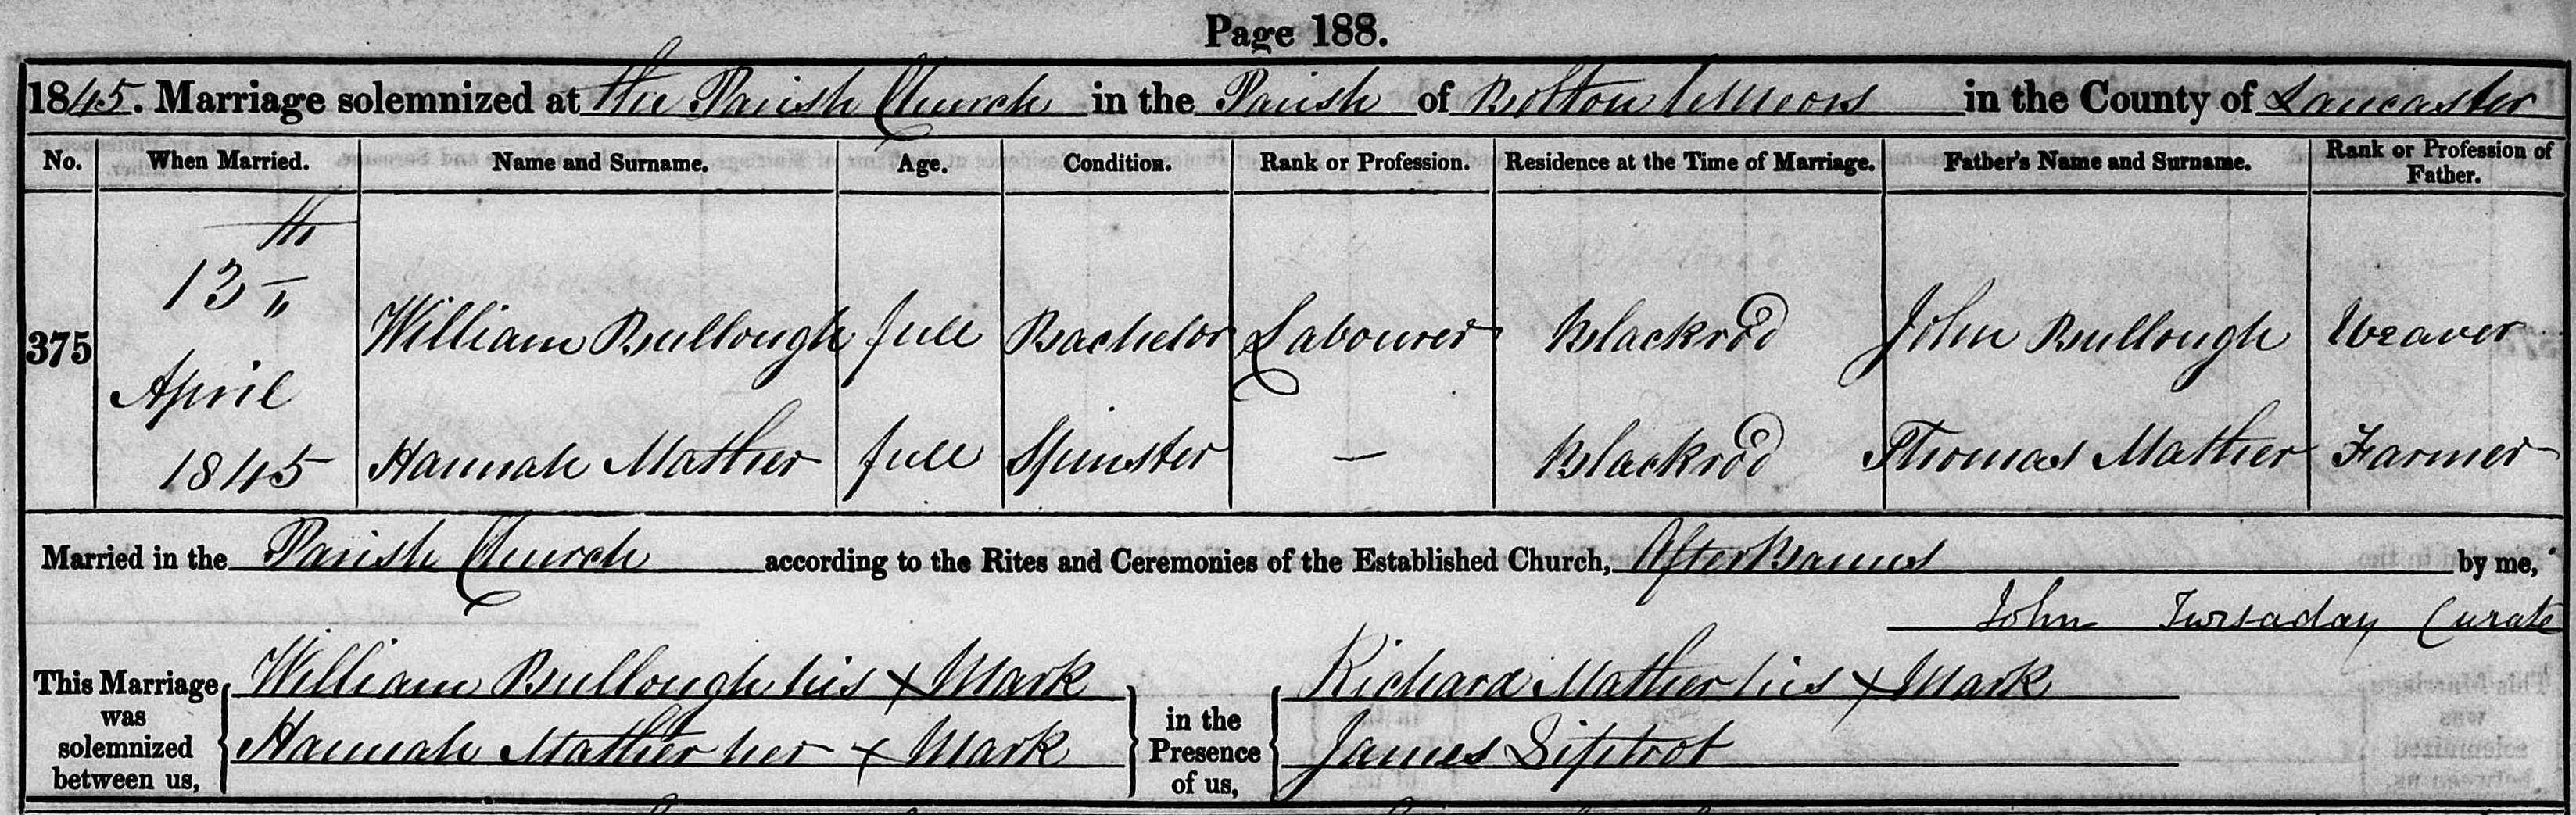 Page 188.
1845. Marriage solemnized at the Parish Church in the Parish of Bolton le Moors in the County of Lancaster
No. When Married. Name and Surname. Age. Condition. Rank or Profession. Residence at the Time of Marriage. Father's Name and Surname. Rank or Profession of Father.
375 13th April 1845
William Bullough full Bachelor Labourer Blackrod John Bullough Weaver
Hannah Mather full Spinster — Blackrod Thomas Mather Farmer
Married in the Parish Church according to the Rites and Ceremonies of the Established Church, After Banns by me,
John Curate
This Marriage was solemnized between us, William Bullough his x Mark
Hannah Mather her x Mark
in the Presence of us, Richard Mather his x Mark
James Siptrot